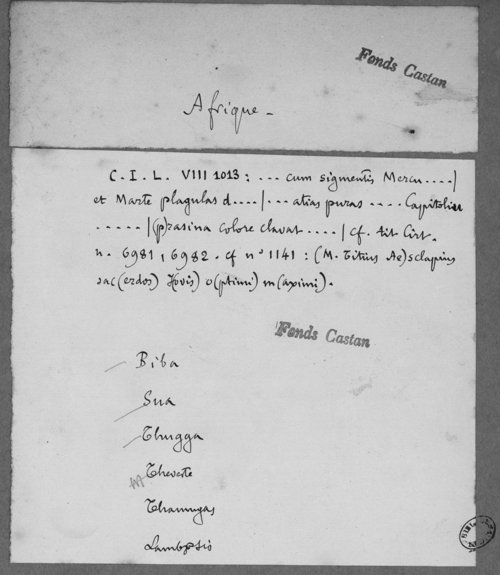 Fonds Castan
Afrique -
C. I. L. VIII 1013 : ... cum sigmentis Mercu ....|
et Marte plagulas d....|... atias puras .... Capitoliu
.....|(p)rasina colore clavat .....| cf. tit Cirt.
n. 6981, 6982. cf n° 1141 : (M. Titius Ae)sclapius
sac(erdos) J(ovis) o(ptimi) m(aximi).
Fonds Castan
Biba
Sua
Thugga
Theveste
Thamugas
Lambæsis